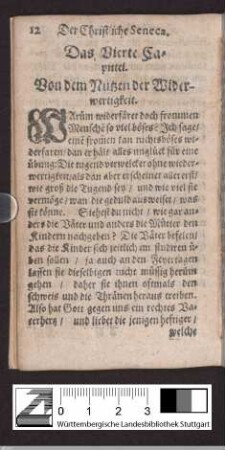 12 Der Christliche Seneca.
Das Vierte Ca-
pittel.
Von dem Nutzen der Wider-
wertigkeit.
WArům widerfäret doch frommen
Menschē so viel böses? Ich sage/
eine frommen kan nichts böses wi-
derfaren/dan er hält alles unglück für eine
übung: Die tugend verwelcket ohne wieder-
wertigkeit/als dan aber erscheinet aller erst/
wie groß die Tugend sey / und wie viel sie
vermöge/wan die gedult ausweiset / was
sie könne. Siehest du nicht / wie gar an-
ders die Väter und anders die Mütter den
Kindern nachgeben? Die Väter befelen/
das die Kinder sich zeitlich im studiren ü-
ben sollen / ja auch an den Feyertagen
lassen sie dieselbigen nicht müssig herům
gehen / daher sie ihnen oftmals den
schweis und die Thränen heraus treiben.
Also hat Gott gegen uns ein rechtes Va-
terhertz / und liebet die jenigen heftiger /
welche
0 1 2 3 4 5 6 7 8 9 10 cm
Württembergische Landesbibliothek Stuttgart